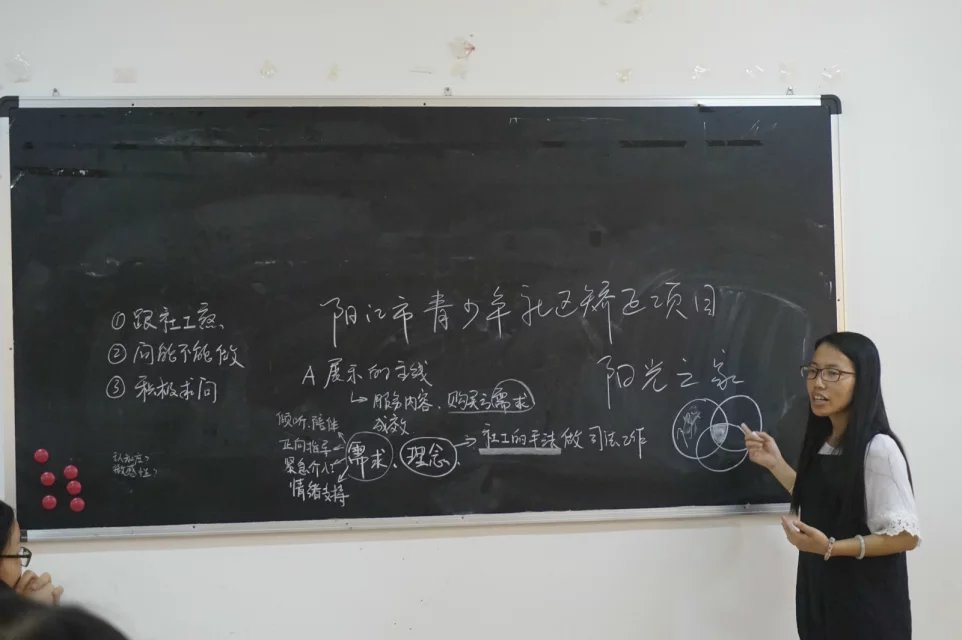 阳江市青少年社区矫正项目
阳光之家
①跟社工熟、
②问能不能做
③积极求问
A 展示的主线
↳服务内容、购买方需求
成效
需求、理念、
→社工的手法做司法工作
倾听、陪伴
正向指导
紧急介入
情绪支持
敏感性?